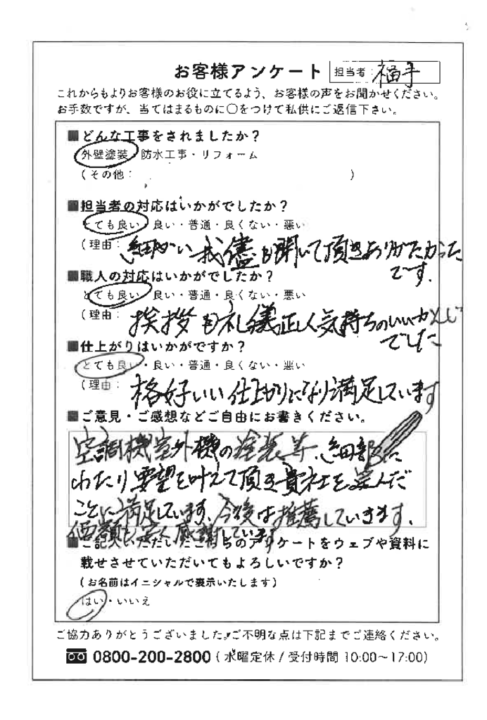 お客様アンケート 担当者: 福手
これからもよりお客様のお役に立てるよう、お客様の声をお聞かせください。
お手数ですが、当てはまるものに〇をつけて私供にご返信下さい。
■どんな工事をされましたか？
外壁塗装・防水工事・リフォーム
(その他: )
■担当者の対応はいかがでしたか？
とても良い・良い・普通・良くない・悪い
(理由: 細かい我儘も聞いて頂きありがたかった
です.
■職人の対応はいかがでしたか？
とても良い・良い・普通・良くない・悪い
(理由: 挨拶も礼儀正しく気持ちのいいかんじ
でした
■仕上がりはいかがですか？
とても良い・良い・普通・良くない・悪い
(理由: 格好いい仕上がりになり満足しています
■ご意見・ご感想などご自由にお書きください。
空調機室外機の塗装等、細部に
わたり要望を叶えて頂き貴社を選んだ
ことに満足しています、今後は推薦していきます.
価額も 感謝しています
■ご記入いただいたお客様のアンケートをウェブや資料に
載せさせていただいてもよろしいですか？
(お名前はイニシャルで表示いたします)
はい・いいえ
ご協力ありがとうございました。ご不明な点は下記までご連絡ください。
0800-200-2800 (水曜定休 / 受付時間 10:00～17:00)